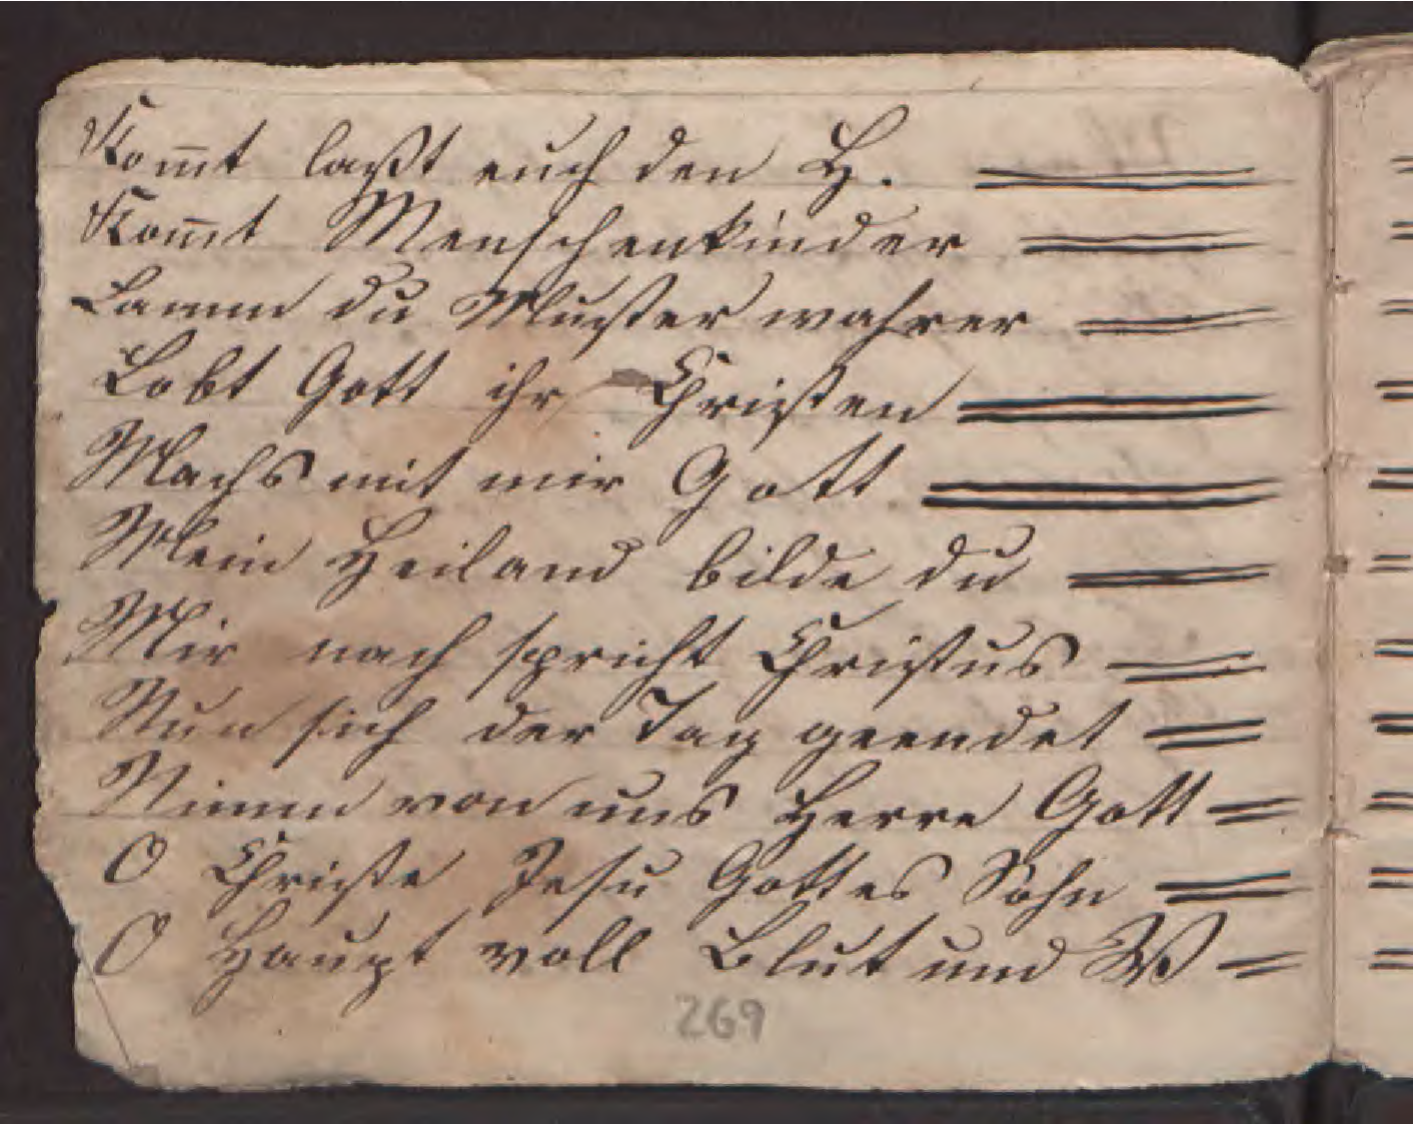 Kom̄t laßt euch den H.
Kom̄t Menschenkinder
Lamm du Muster wahrer
Lobt Gott ihr Christen
Machs mit mir Gott
Mein Heiland bilde du
Mir nach spricht Christus
Nun sich der Tag geendet
Nimm von uns Herre Gott
O Christe Jesu Gottes Sohn
O Haupt voll Blut und W
269